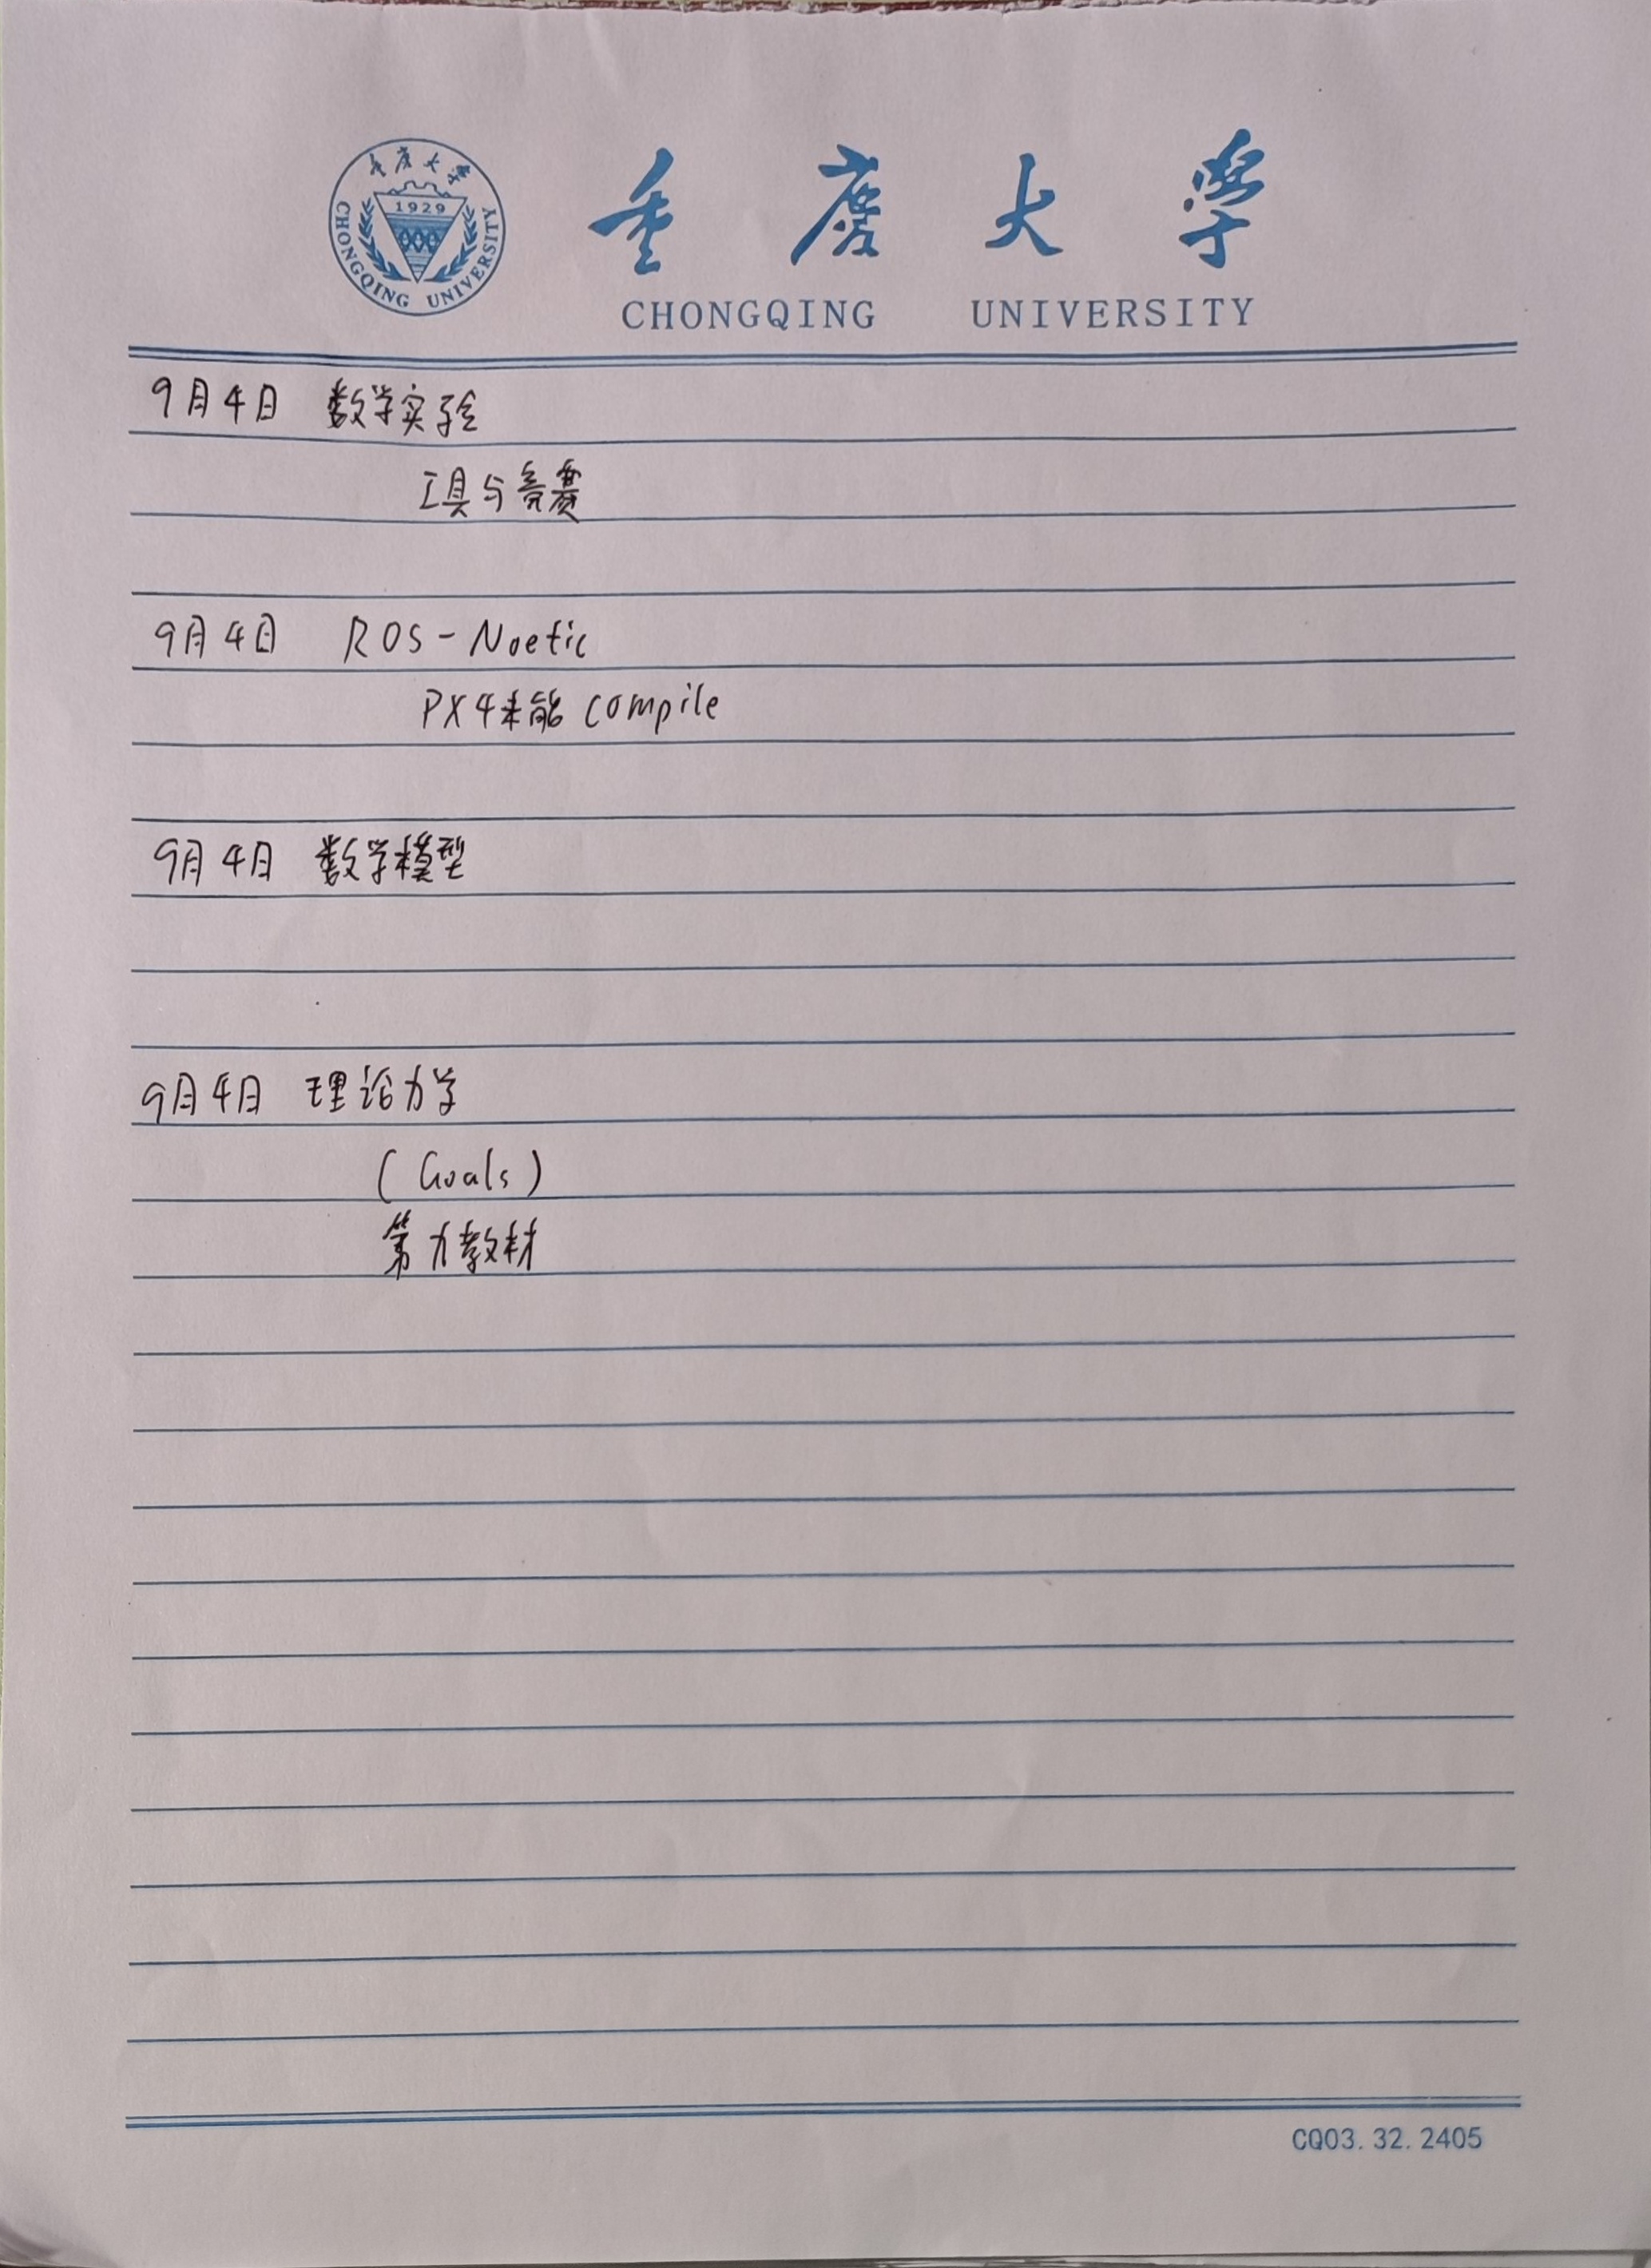 重庆大学
1929
CHONGQING UNIVERSITY
重庆大学
CHONGQING UNIVERSITY
9月4日 数学实验
工具与竞赛
9月4日 ROS-Noetic
PX4未能compile
9月4日 数学模型
9月4日 理论力学
(Goals)
第力教材
CQ03.32.2405